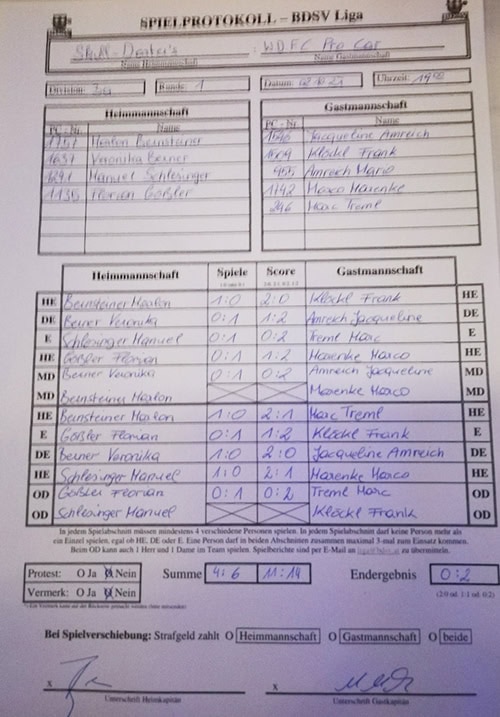 SPIELPROTOKOLL – BDSV Liga
WDFC Pro Car
Name Heimmannschaft Name Gastmannschaft
Division: Runde: 1 Datum: Uhrzeit:
Heimmannschaft
PC - Nr. Name
Marlon Beinsteiner
1637 Veronika Beiner
Manuel Schlesinger
1135 Florian Gößler
Gastmannschaft
PC - Nr. Name
Jacqueline Amreich
Klöckl Frank
955 Amreich Mario
1742 Marenke Marco
246 Marc Treml
Heimmannschaft Spiele Score Gastmannschaft
HE Beinsteiner Marlon 1:0 2:0 Klöckl Frank HE
DE Beiner Veronika 0:1 1:2 Amreich Jacqueline DE
E Schlesinger Manuel 0:1 0:2 Treml Marc E
HE Gößler Florian 0:1 1:2 Marenke Marco HE
MD Beiner Veronika 0:1 0:2 Amreich Jacqueline MD
MD Beinsteiner Marlon Marenke Marco MD
HE Beinsteiner Marlon 1:0 2:1 Marc Treml HE
E Gößler Florian 0:1 1:2 Klöckl Frank E
DE Beiner Veronika 1:0 2:0 Jacqueline Amreich DE
HE Schlesinger Manuel 1:0 2:1 Marenke Marco HE
OD Gößler Florian 0:1 0:2 Treml Marc OD
OD Schlesinger Manuel Klöckl Frank OD
In jedem Spielabschnitt müssen mindestens 4 verschiedene Personen spielen. In jedem Spielabschnitt darf keine Person mehr als
ein Einzel spielen, egal ob HE, DE oder E. Eine Person darf in beiden Abschnitten zusammen maximal 3-mal zum Einsatz kommen.
Beim OD kann auch 1 Herr und 1 Dame im Team spielen. Spielberichte sind per E-Mail an zu übermitteln.
Protest: O Ja O Nein Summe 4:6 11:14 Endergebnis 0:2
Vermerk: O Ja O Nein (2:0 od. 1:1 od. 0:2)
Bei Spielverschiebung: Strafgeld zahlt O Heimmannschaft O Gastmannschaft O beide
x x
Unterschrift Heimkapitän Unterschrift Gastkapitän